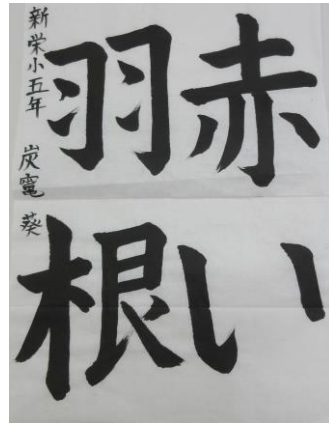 赤い
羽根
新栄小五年 炭竃 葵